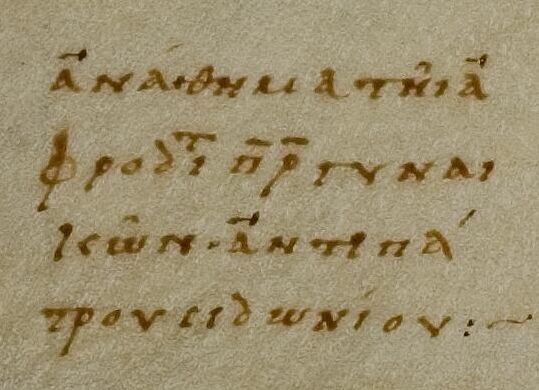 ἀνάθημα τῆι ἀ
φροδιτ π̄ρ̄ γυναι
κῶν· ἀντιπά
τρου σιδωνίου :~